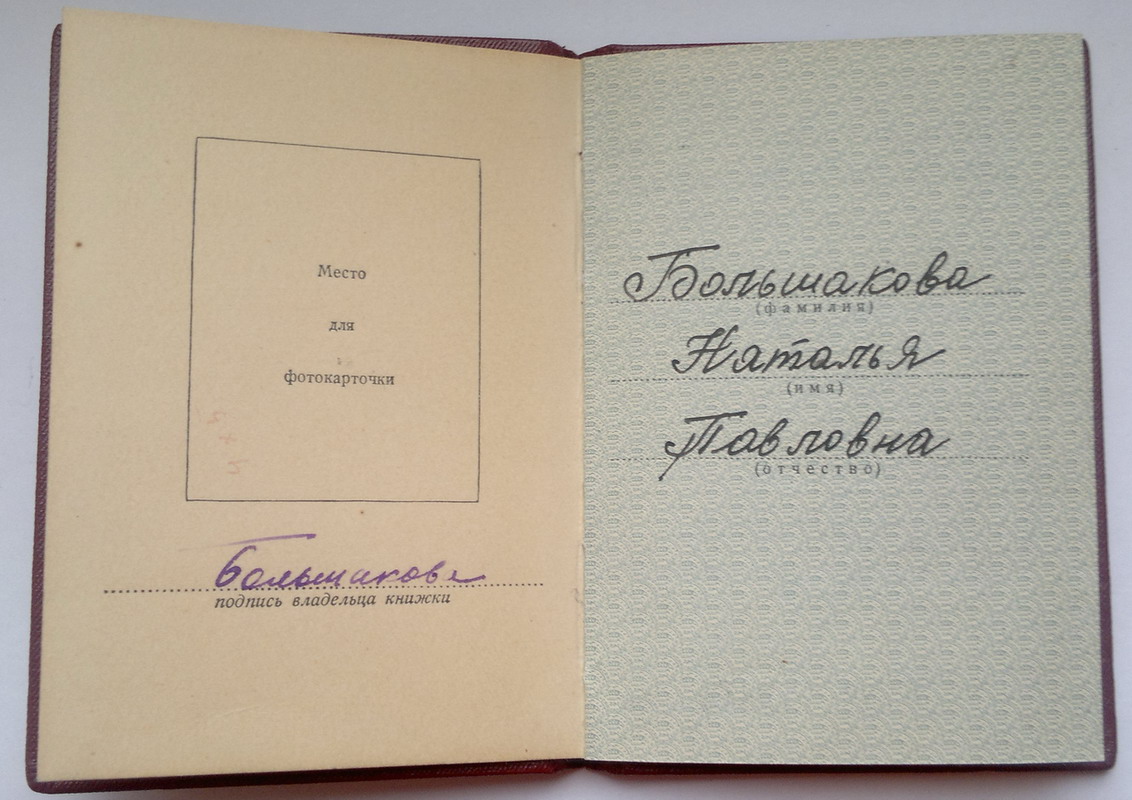 Место
для
фотокарточки
Большакова
подпись владельца книжки
Большакова
(фамилия)
Наталья
(имя)
Павловна
(отчество)